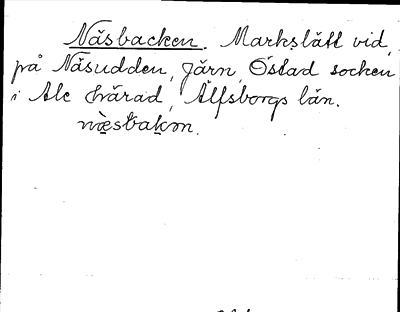 Näsbacken. Markslätt vid,
på Näsudden, Järn, Östad socken
i Ale härad, Älfsborgs län.